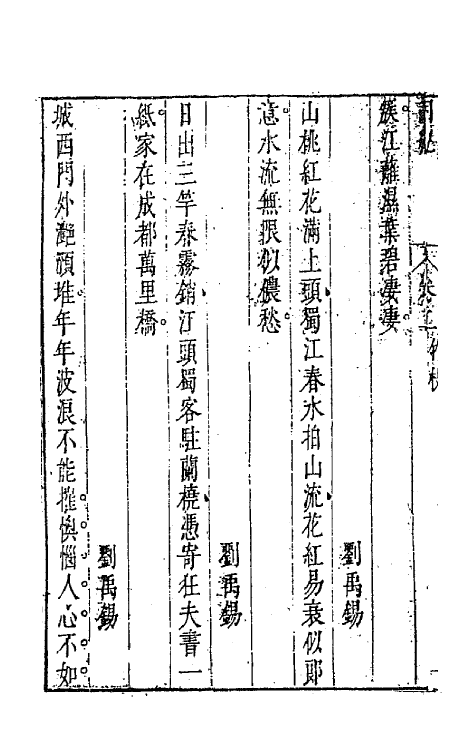 簇江蘺濕葉碧淒淒
劉禹錫
山桃紅花滿上頭蜀江春水拍山流花紅易衰似郎
意水流無限似儂愁
劉禹錫
日出三竿春霧銷江頭蜀客駐蘭橈憑寄狂夫書一
紙家在成都萬里橋
劉禹錫
城西門外灔預堆年年波浪不能摧懊惱人心不如